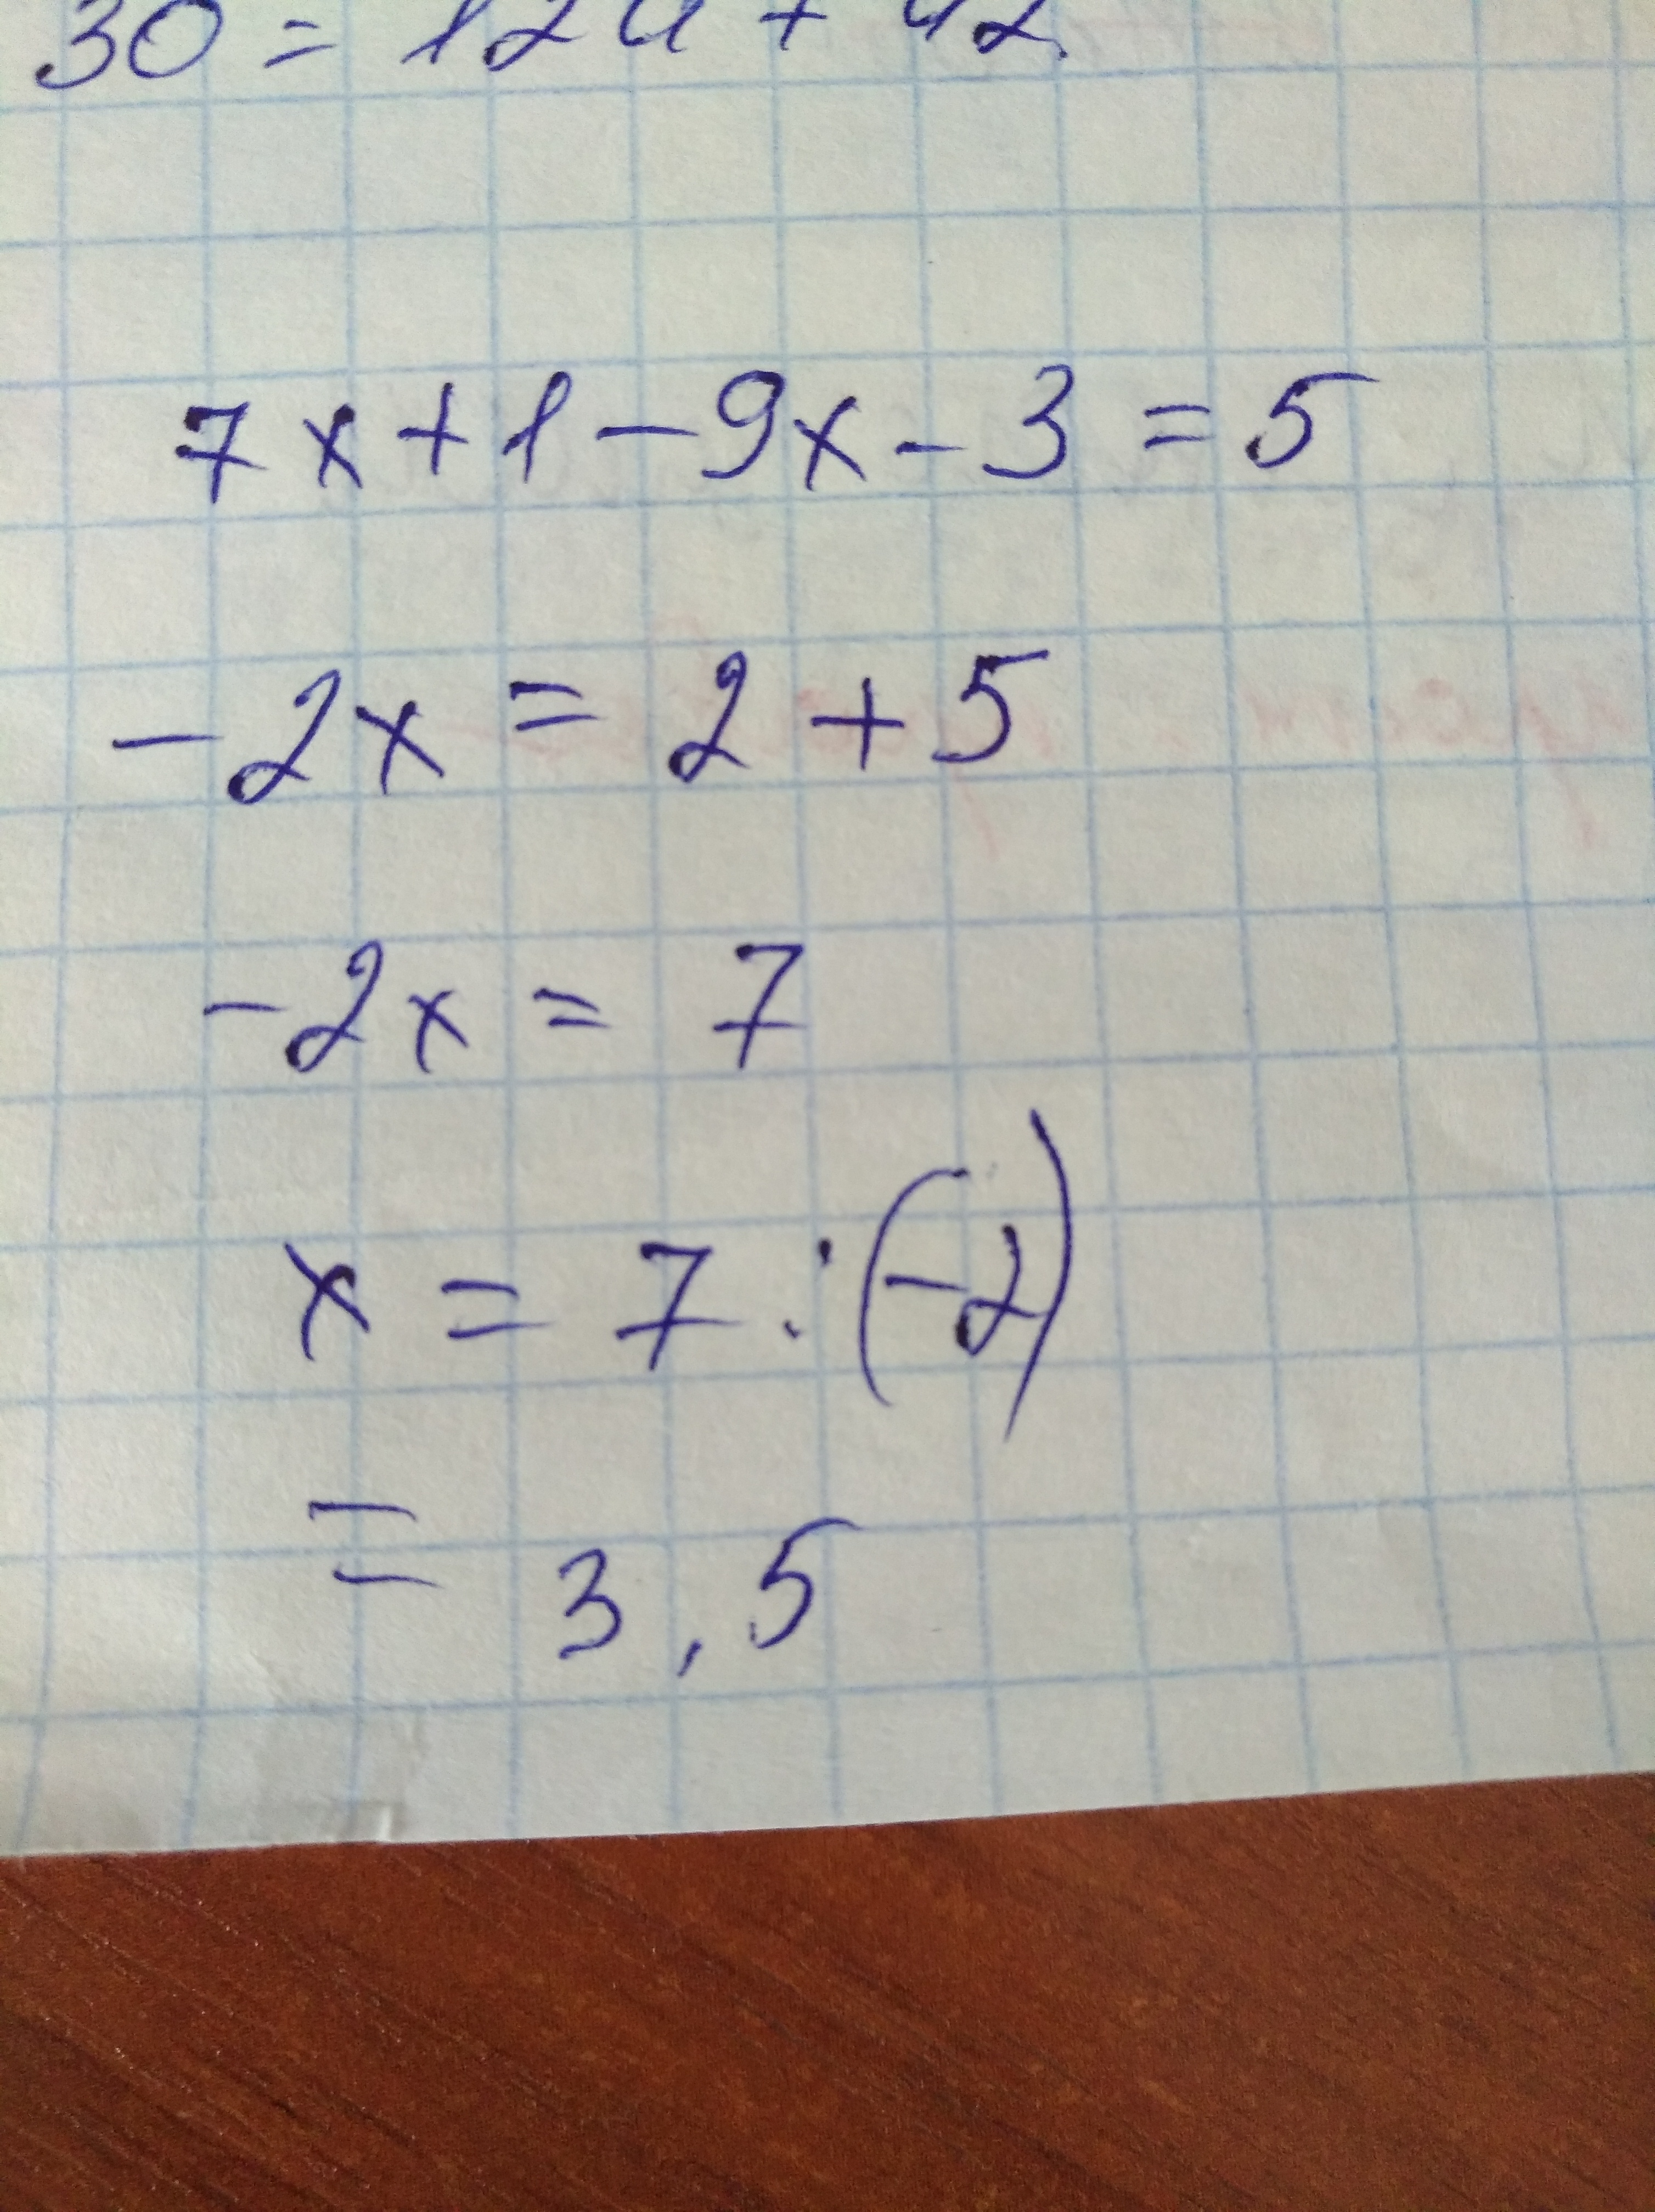 30 = 12
7x + 1 - 9x - 3 = 5
-2x = 2 + 5
-2x = 7
x = 7 : (-2)
= 3,5